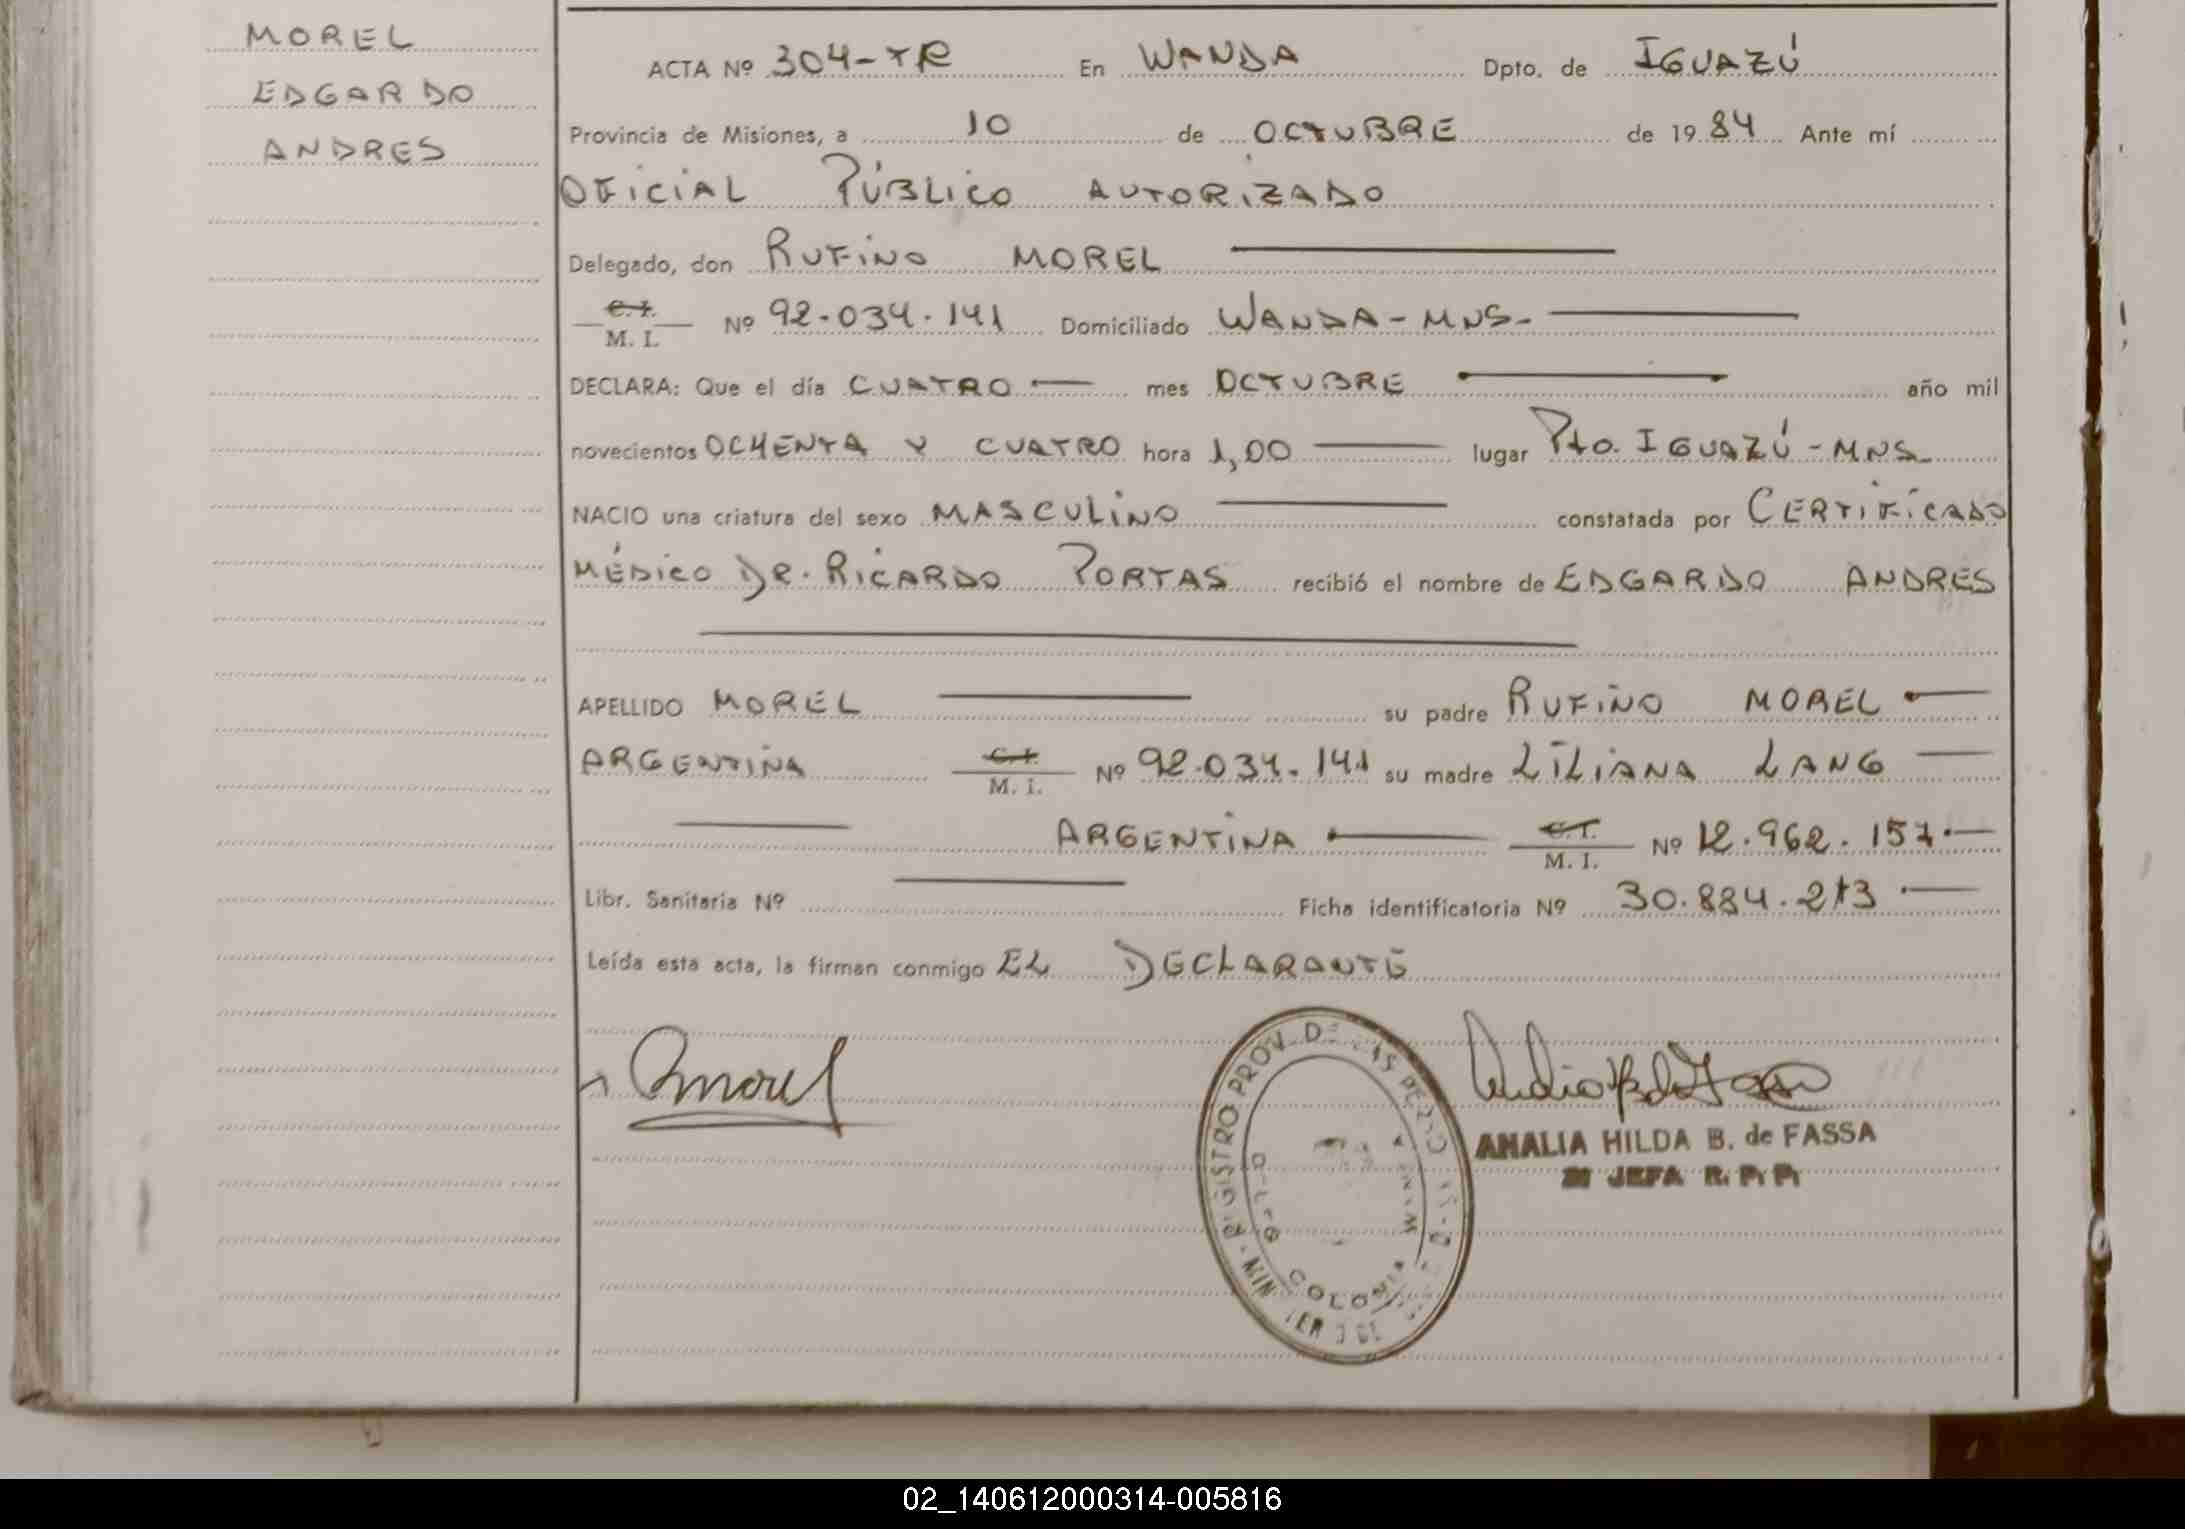 MOREL
EDGARDO
ANDRES
ACTA Nº 304-TR En WANDA Dpto. de IGUAZÚ
Provincia de Misiones, a 10 de OCTUBRE de 1984 Ante mí
OFICIAL PÚBLICO AUTORIZADO
Delegado, don RUFINO MOREL
C.I. M. I. Nº 92.034.141 Domiciliado WANDA-MNS-
DECLARA: Que el día CUATRO mes OCTUBRE año mil
novecientos OCHENTA Y CUATRO hora 1,00 lugar Pto. IGUAZÚ-MNS
NACIO una criatura del sexo MASCULINO constatada por CERTIFICADO
MÉDICO DR. RICARDO PORTAS recibió el nombre de EDGARDO ANDRES
APELLIDO MOREL su padre RUFINO MOREL
ARGENTINA C.I. M. I. Nº 92.034.141 su madre LILIANA LANG
ARGENTINA C.I. M. I. Nº 12.962.157
Libr. Sanitaria Nº Ficha identificatoria Nº 30.884.213
Leída esta acta, la firman conmigo EL DECLARANTE
Rmorel
REGISTRO PROV. DE LAS PERSONAS
COLONIA WANDA
AMALIA HILDA B. de FASSA
JEFA R. P. P.
02_140612000314-005816